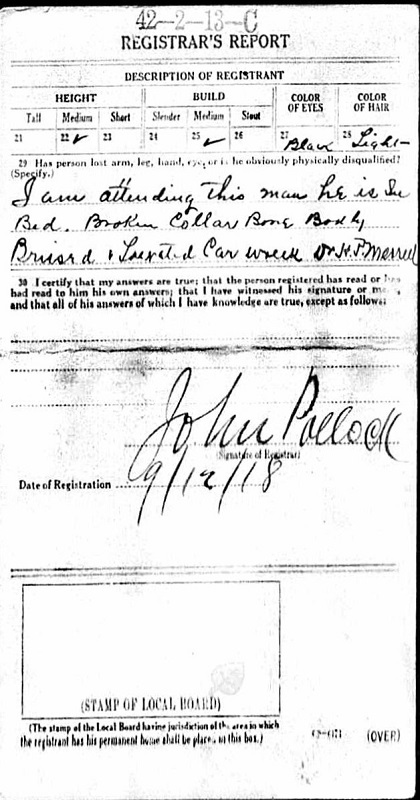 42-2-13-C
REGISTRAR'S REPORT
DESCRIPTION OF REGISTRANT
HEIGHT BUILD COLOR OF EYES COLOR OF HAIR
Tall Medium Short Slender Medium Stout
21 22 ✓ 23 24 25 ✓ 26 27 Black 28 Light
29 Has person lost arm, leg, hand, eye, or is he obviously physically disqualified?
(Specify.)
I am attending this man he is In
Bed. Broken Collar Bone Badly
Brused & Car wreck Dr H.P. Merrell
30 I certify that my answers are true; that the person registered has read or has
had read to him his own answers; that I have witnessed his signature or mark,
and that all of his answers of which I have knowledge are true, except as follows:
John Pollock
(Signature of Registrar)
Date of Registration 9/12/18
(STAMP OF LOCAL BOARD)
(The stamp of the Local Board having jurisdiction of the area in which
the registrant has his permanent home shall be placed in this box.)
(OVER)